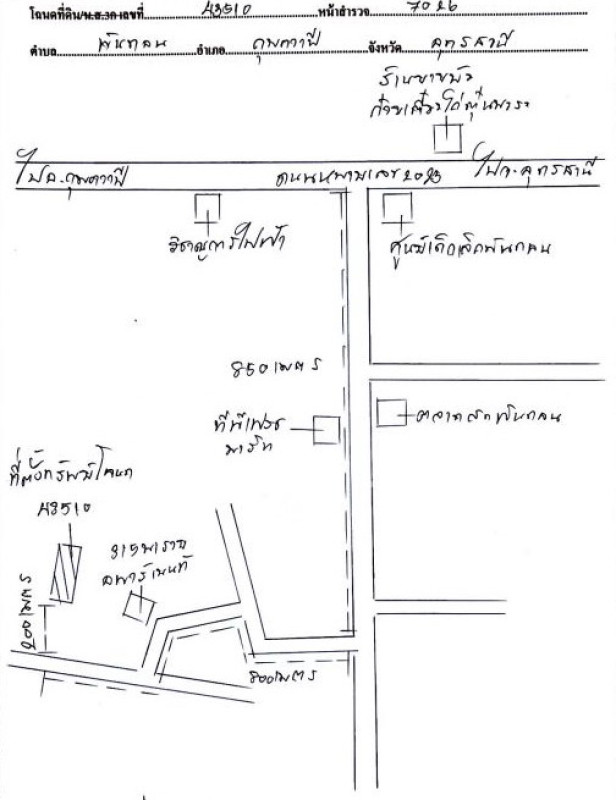 โฉนดที่ดิน/น.ส.3ก เลขที่ 43510 หน้าสำรวจ 7026
ตำบล พันดอน อำเภอ กุมภวาปี จังหวัด อุดรธานี
ร้านยายบัว
ก๋วยเตี๋ยวไก่ตุ๋นมาระ
ไปอ.กุมภวาปี ถนนหมายเลข 2023 ไปจ.อุดรธานี
วิชาญการไฟฟ้า
ศูนย์เด็กเล็กพันดอน
850 เมตร
ทีพีเฟรช
มาร์ท
ตลาดสดพันดอน
ที่ตั้งทรัพย์โฉนด
43510
อพาร์เมนท์
200 เมตร
800 เมตร